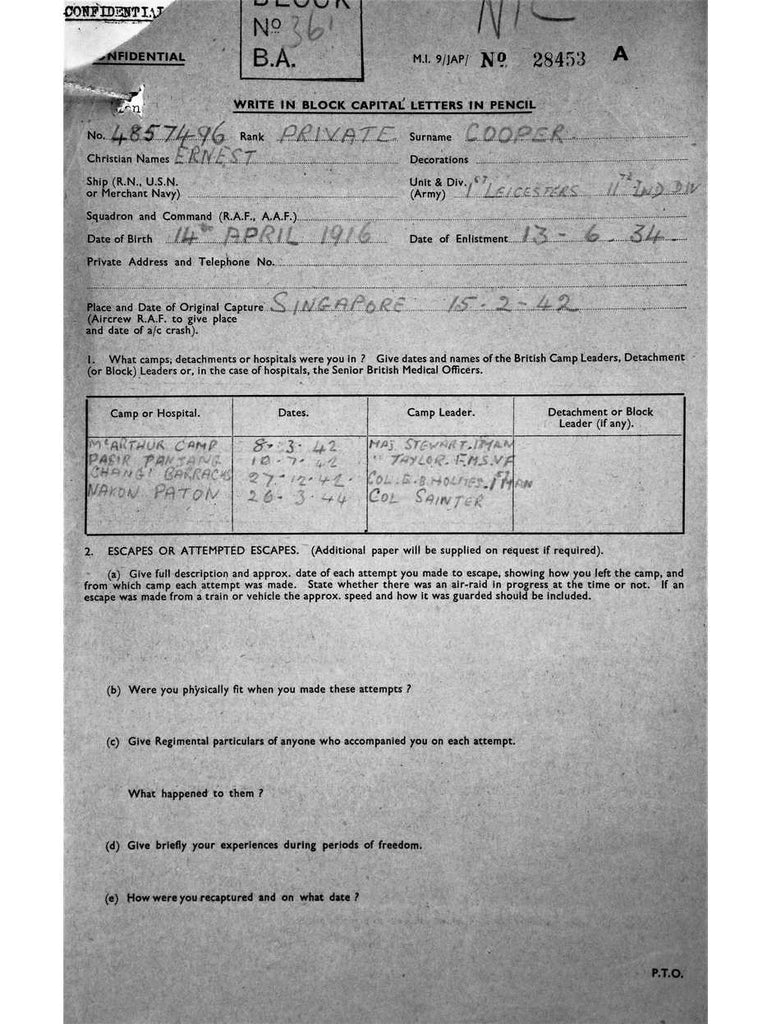 CONFIDENTIAL
BLOCK
Nº 36
B.A.
NIL
CONFIDENTIAL
M.I. 9/JAP/ Nº 28453 A
WRITE IN BLOCK CAPITAL LETTERS IN PENCIL
No. 4857496 Rank PRIVATE Surname COOPER
Christian Names ERNEST Decorations
Ship (R.N., U.S.N. or Merchant Navy)
Unit & Div. (Army) 1ST LEICESTERS 11TH IND DIV
Squadron and Command (R.A.F., A.A.F.)
Date of Birth 14th APRIL 1916 Date of Enlistment 13 - 6 . 34 .
Private Address and Telephone No.
Place and Date of Original Capture SINGAPORE 15 - 2 - 42
(Aircrew R.A.F. to give place
and date of a/c crash).
1. What camps, detachments or hospitals were you in ? Give dates and names of the British Camp Leaders, Detachment
(or Block) Leaders or, in the case of hospitals, the Senior British Medical Officers.
Camp or Hospital. Dates. Camp Leader. Detachment or Block Leader (if any).
McARTHUR CAMP 8 - 3 - 42 MAJ STEWART. 1 MAN
PASIR PANJANG 10 - 7 - 42 " TAYLOR. F.M.S.V.F
CHANGI BARRACKS 27 - 12 - 42 - COL. E. B. HOLMES. 1ST MAN
NAKON PATON 26 - 3 - 44 COL SAINTER
2. ESCAPES OR ATTEMPTED ESCAPES. (Additional paper will be supplied on request if required).
(a) Give full description and approx. date of each attempt you made to escape, showing how you left the camp, and
from which camp each attempt was made. State whether there was an air-raid in progress at the time or not. If an
escape was made from a train or vehicle the approx. speed and how it was guarded should be included.
(b) Were you physically fit when you made these attempts ?
(c) Give Regimental particulars of anyone who accompanied you on each attempt.
What happened to them ?
(d) Give briefly your experiences during periods of freedom.
(e) How were you recaptured and on what date ?
P.T.O.